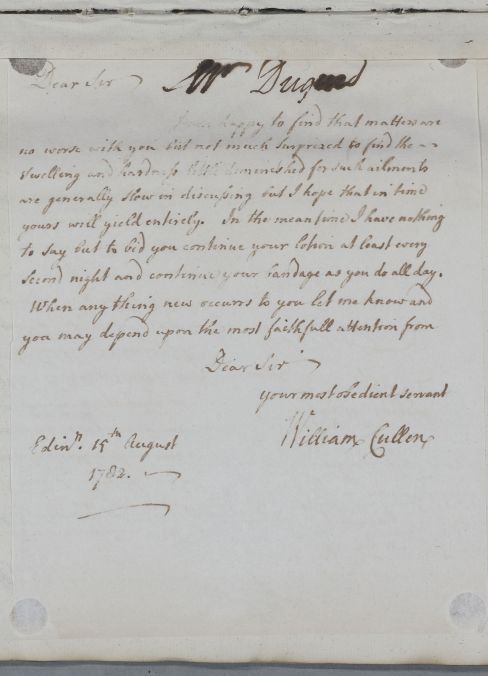 Dear Sir Mr Dugud
I am happy to find that matters are
no worse with you but not much surprized to find the
Swelling and hardness little diminished for such ailments
are generally slow in discussing but I hope that in time
yours will yield entirely. In the meantime I have nothing
to say but to bid you continue your lotion at least every
second night and continue your bandage as you do all day.
When any thing new occurrs to you let me know and
you may depend upon the most faithfull attention from
Dear Sir
your most obedient servant
William Cullen
Edinr. 15th August
1782.